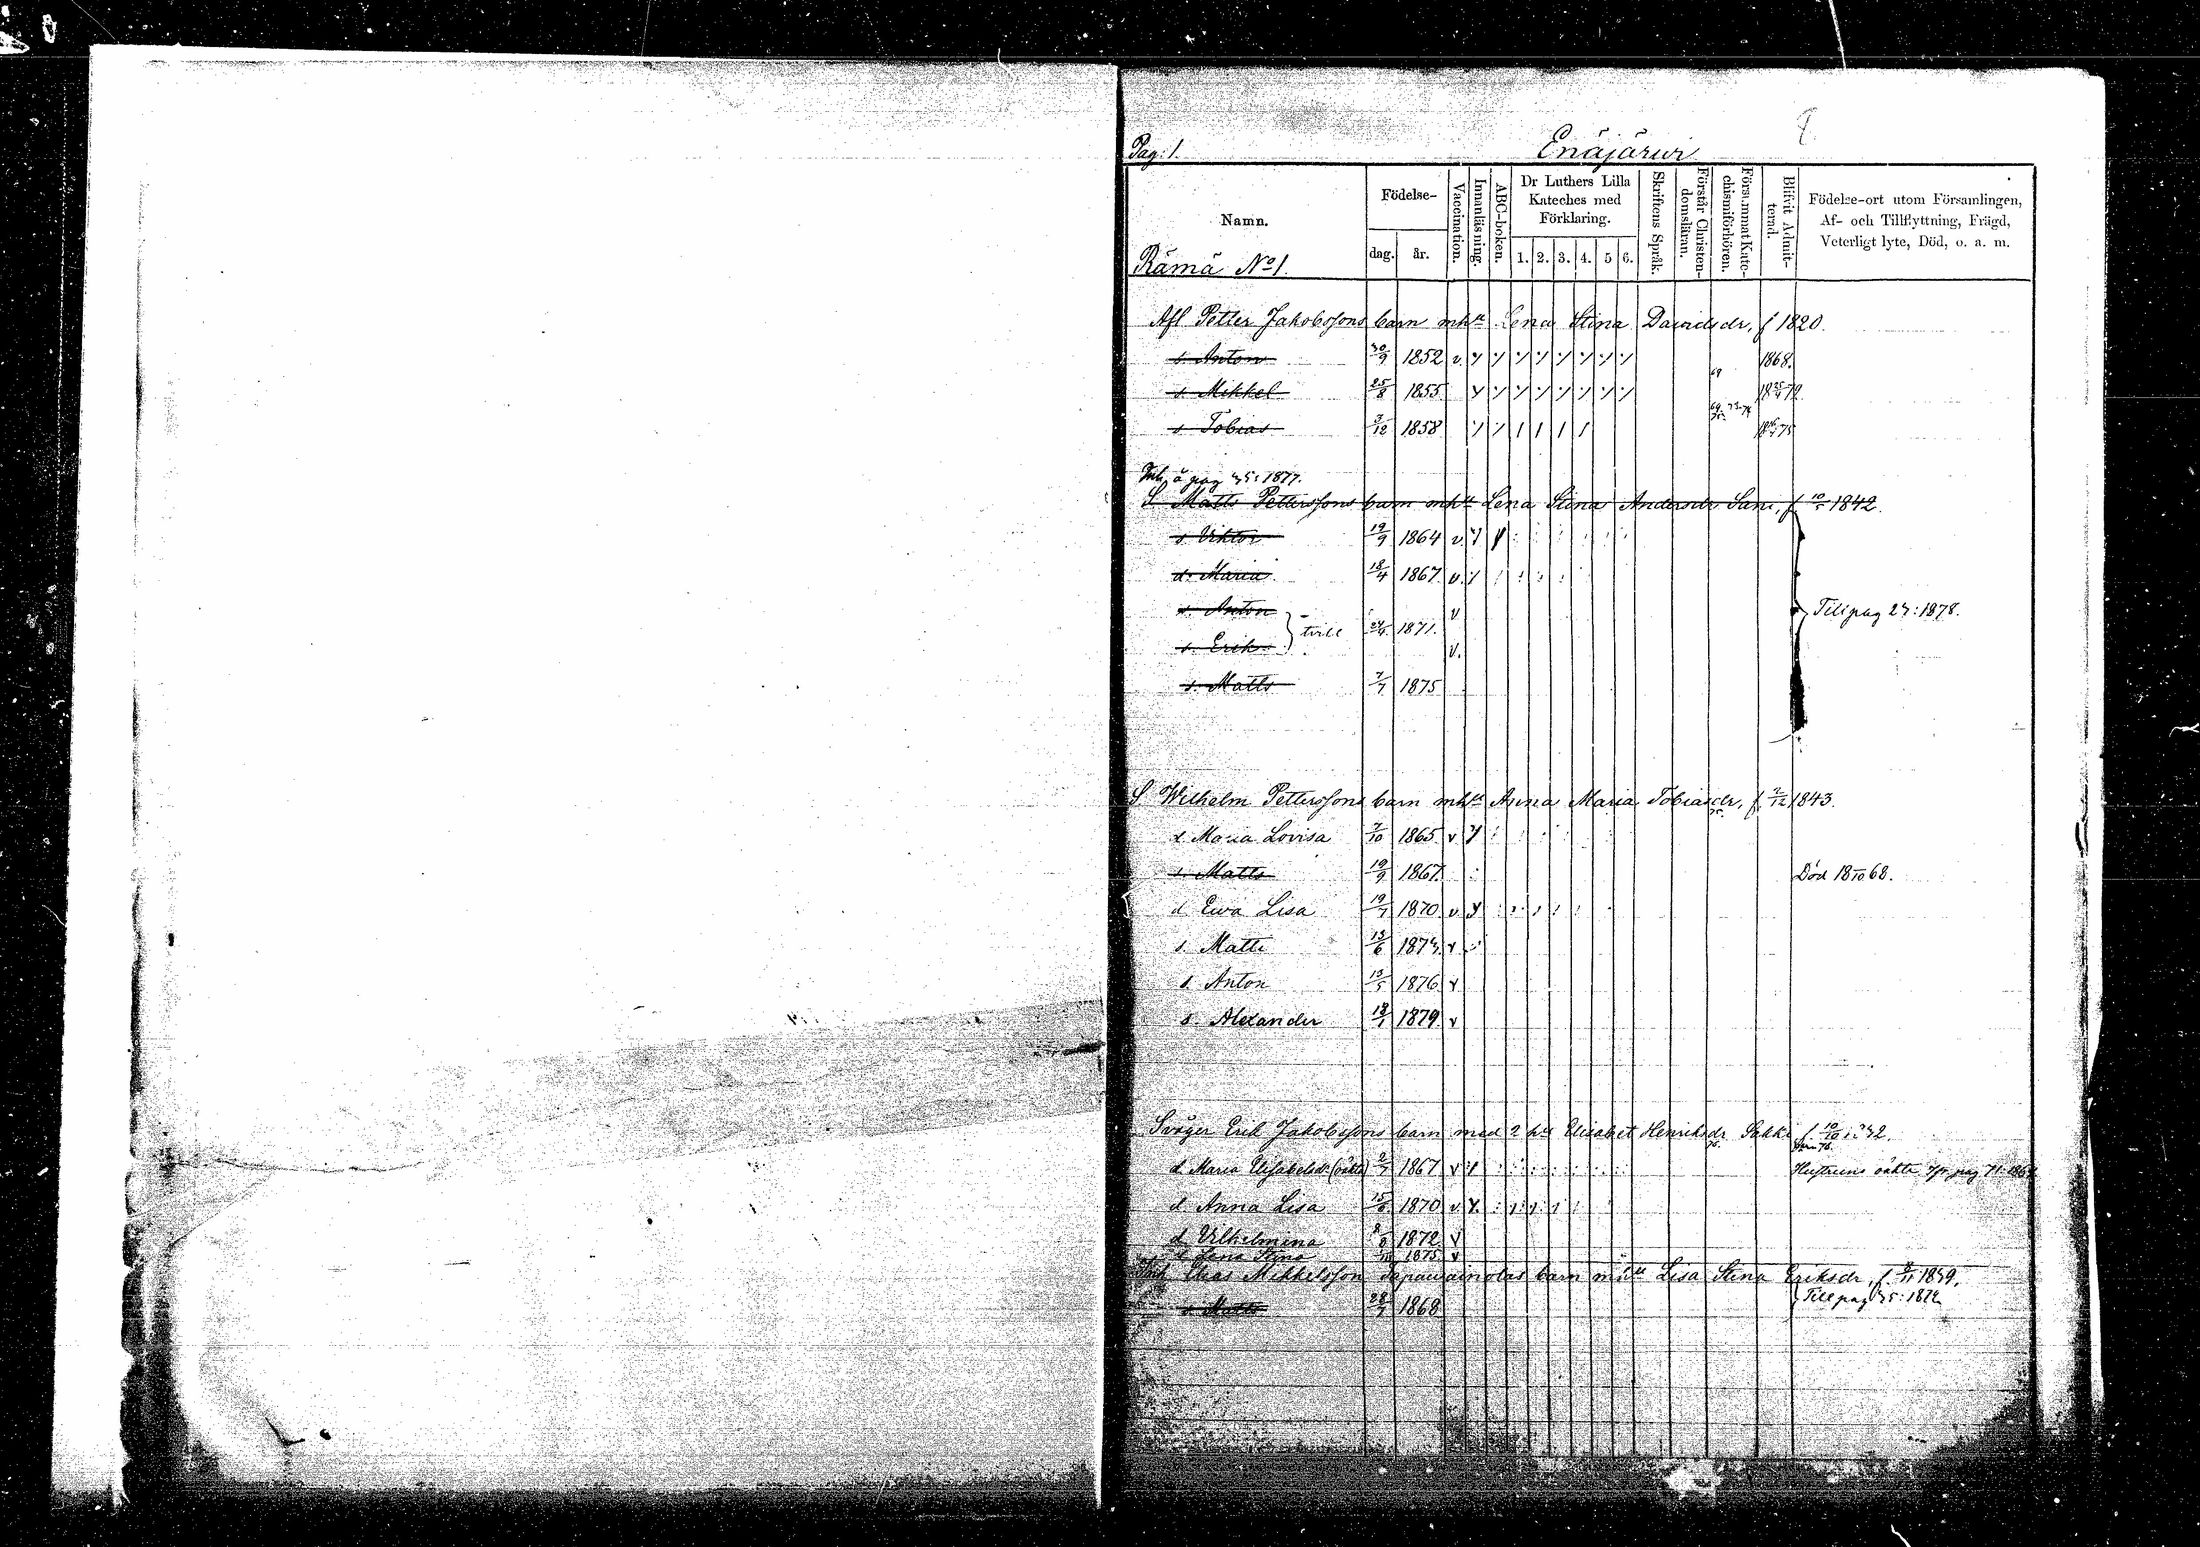 Pag: 1.
Enäjärvi
Namn.
Födelse-
dag.
år.
Vaccination.
Innanläsning.
ABC-boken.
Dr Luthers Lilla
Kateches med
Förklaring.
1. 2. 3. 4. 5 6.
Skriftens Språk.
Förstår Christen-
domsläran.
Förs.mmat Kate-
chismiförhören.
Blifvit Admit-
terad.
Födelse-ort utom Församlingen,
Af- och Tillflyttning, Frägd,
Veterligt lyte, Död, o. a. m.
Rämä No 1.
Afl Petter Jakobssons barn m hu Lena Stina Davidsdr, f 1820.
s. Anton 30/9 1852 v. 1868.
s. Mikkel 25/8 1855 69
s. Tobias 3/12 1858
å pag 1877.
S Matts Petterssons barn m hu Lena Stina Andersdr f 10/5 1842.
s. Viktor 19/9 1864 v.
d. Maria 18/4 1867 v.
s. Anton } tvill 1871. v Till pag 27: 1878.
s. Erik v.
s. Matts 7/7 1875
S Wilhelm Petterssons barn m hu Anna Maria Tobiasdr, f. 2/12 1843.
d Maria Lovisa 7/10 1865 v
s. Matts 19/9 1867. Död 18 10 68.
d Ewa Lisa 19/7 1870 v
s. Matts 13/6 v
s. Anton 13/5 1876 v
s. Alexander 18/1 1879 v
Svåger Erik Jakobssons barn med 2 hu Elisabet Henriksdr f. 10/10
d. Maria Elisabetsdr (oäkta) 2/7 1867 v Hustruns oäkta pag 71
d Anna Lisa 1870 v
d. Vilhelmina 1872 v
d Lena Stina 1875 v
Elias Mikkelsson barn m hu Lisa Stina Eriksdr, f 1839.
s Matts 28/7 1868 Till pag